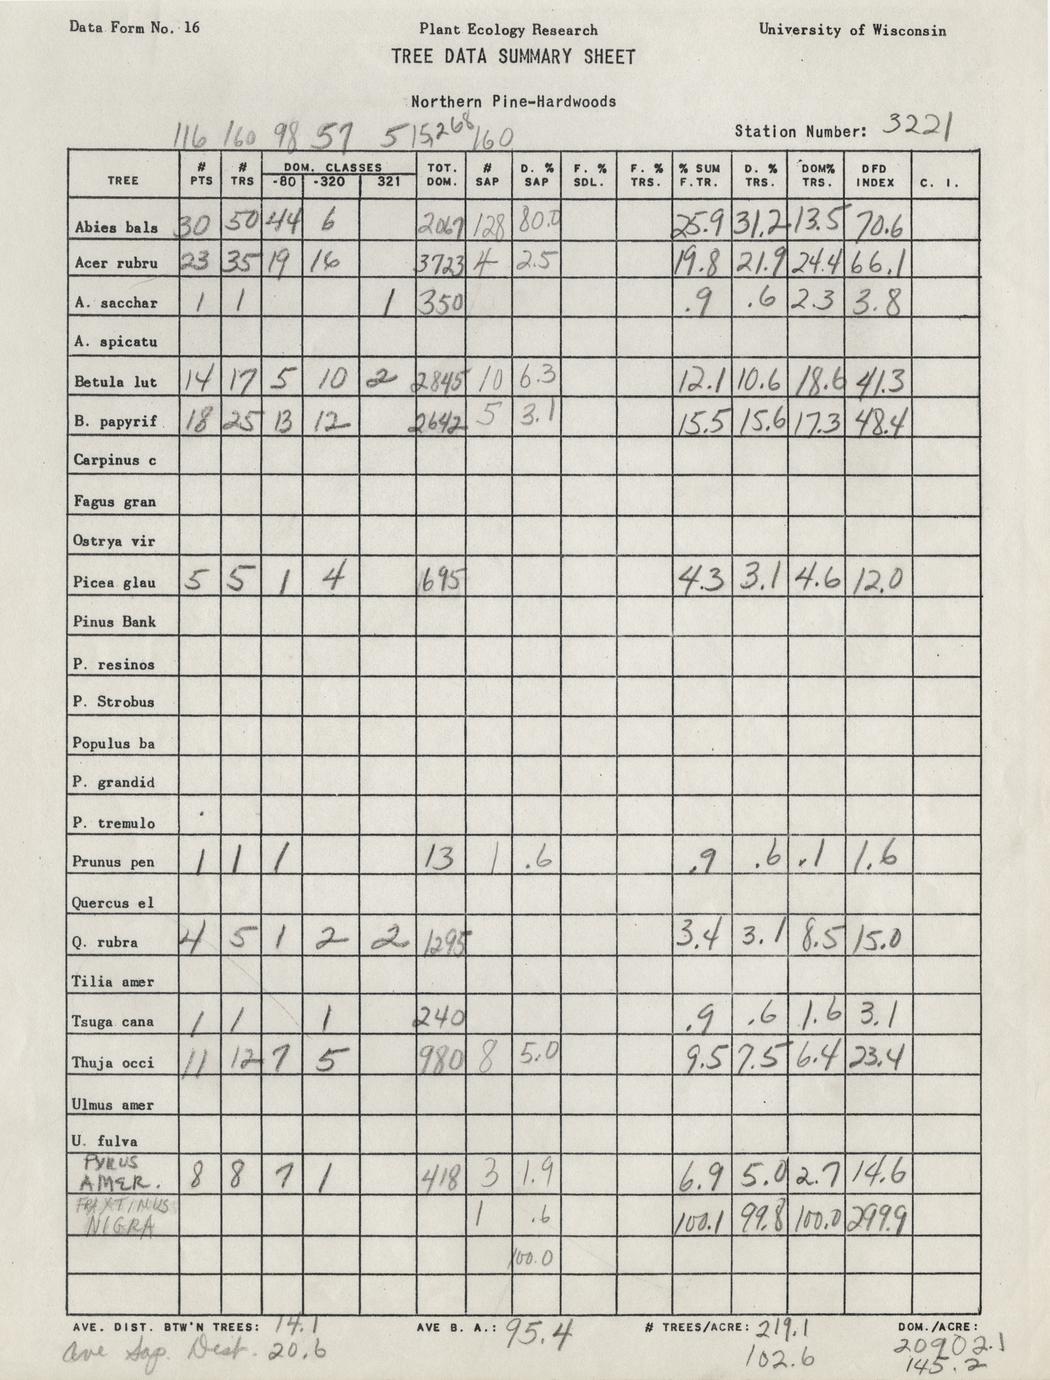 Data Form No. 16 Plant Ecology Research University of Wisconsin
TREE DATA SUMMARY SHEET
Northern Pine-Hardwoods
Station Number: 3221
116 160 98 57 5 15,268 160
TREE # PTS # TRS DOM. CLASSES -80 -320 321 TOT. DOM. # SAP D. % SAP F. % SDL. F. % TRS. % SUM F.TR. D. % TRS. DOM% TRS. DFD INDEX C. I.
Abies bals 30 50 44 6 2067 128 80.0 25.9 31.2 13.5 70.6
Acer rubru 23 35 19 16 3723 4 2.5 19.8 21.9 24.4 66.1
A. sacchar 1 1 1 350 .9 .6 2.3 3.8
A. spicatu
Betula lut 14 17 5 10 2 2845 10 6.3 12.1 10.6 18.6 41.3
B. papyrif 18 25 13 12 2642 5 3.1 15.5 15.6 17.3 48.4
Carpinus c
Fagus gran
Ostrya vir
Picea glau 5 5 1 4 695 4.3 3.1 4.6 12.0
Pinus Bank
P. resinos
P. Strobus
Populus ba
P. grandid
P. tremulo
Prunus pen 1 1 1 13 1 .6 .9 .6 .1 1.6
Quercus el
Q. rubra 4 5 1 2 2 1295 3.4 3.1 8.5 15.0
Tilia amer
Tsuga cana 1 1 1 240 .9 .6 1.6 3.1
Thuja occi 11 12 7 5 980 8 5.0 9.5 7.5 6.4 23.4
Ulmus amer
U. fulva
PYRUS AMER. 8 8 7 1 418 3 1.9 6.9 5.0 2.7 14.6
FRAXINUS NIGRA 1 .6 100.1 99.8 100.0 299.9
100.0
AVE. DIST. BTW'N TREES: 14.1 AVE B. A.: 95.4 # TREES/ACRE: 219.1 DOM./ACRE: 20902.1
Ave Sap. Dist. 20.6 102.6 145.2